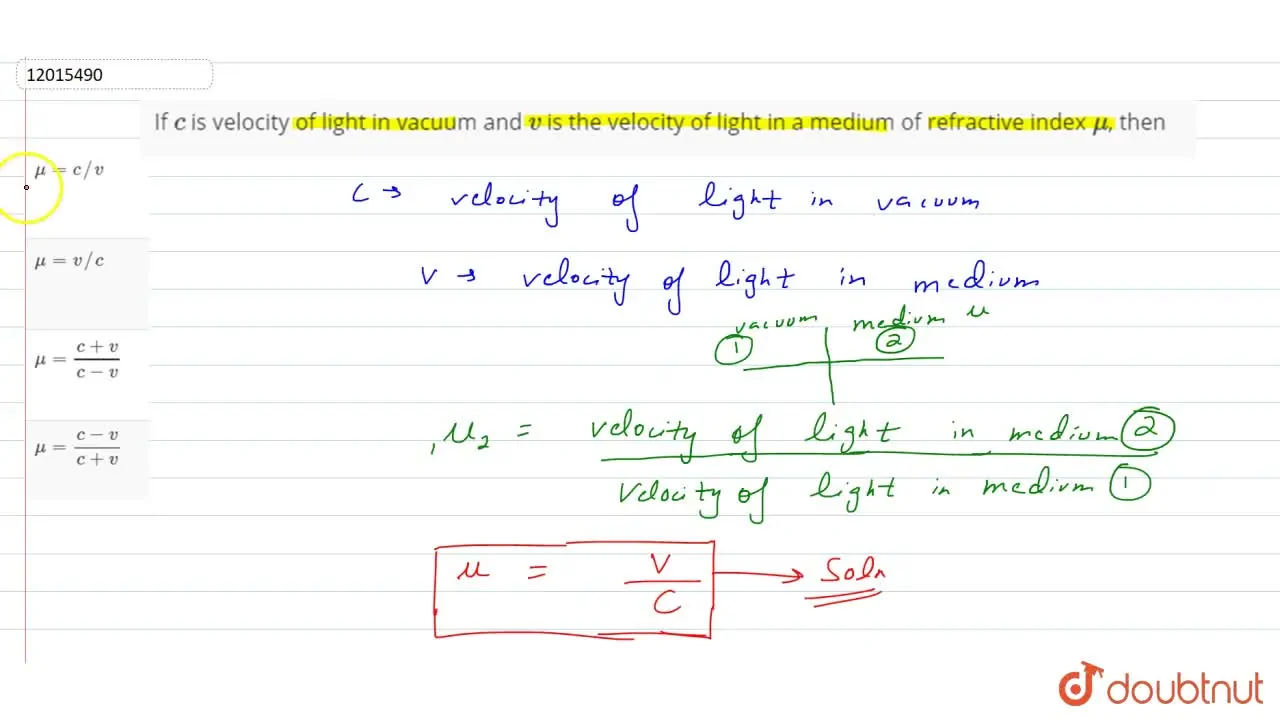 12015490
If c is velocity of light in vacuum and v is the velocity of light in a medium of refractive index μ, then
μ = c/v
μ = v/c
μ = (c + v)/(c − v)
μ = (c − v)/(c + v)
C → velocity of light in vacuum
V → velocity of light in medium
vacuum medium μ
① ②
₁μ₂ = velocity of light in medium ②
velocity of light in medium ①
μ = V/C → Soln
doubtnut